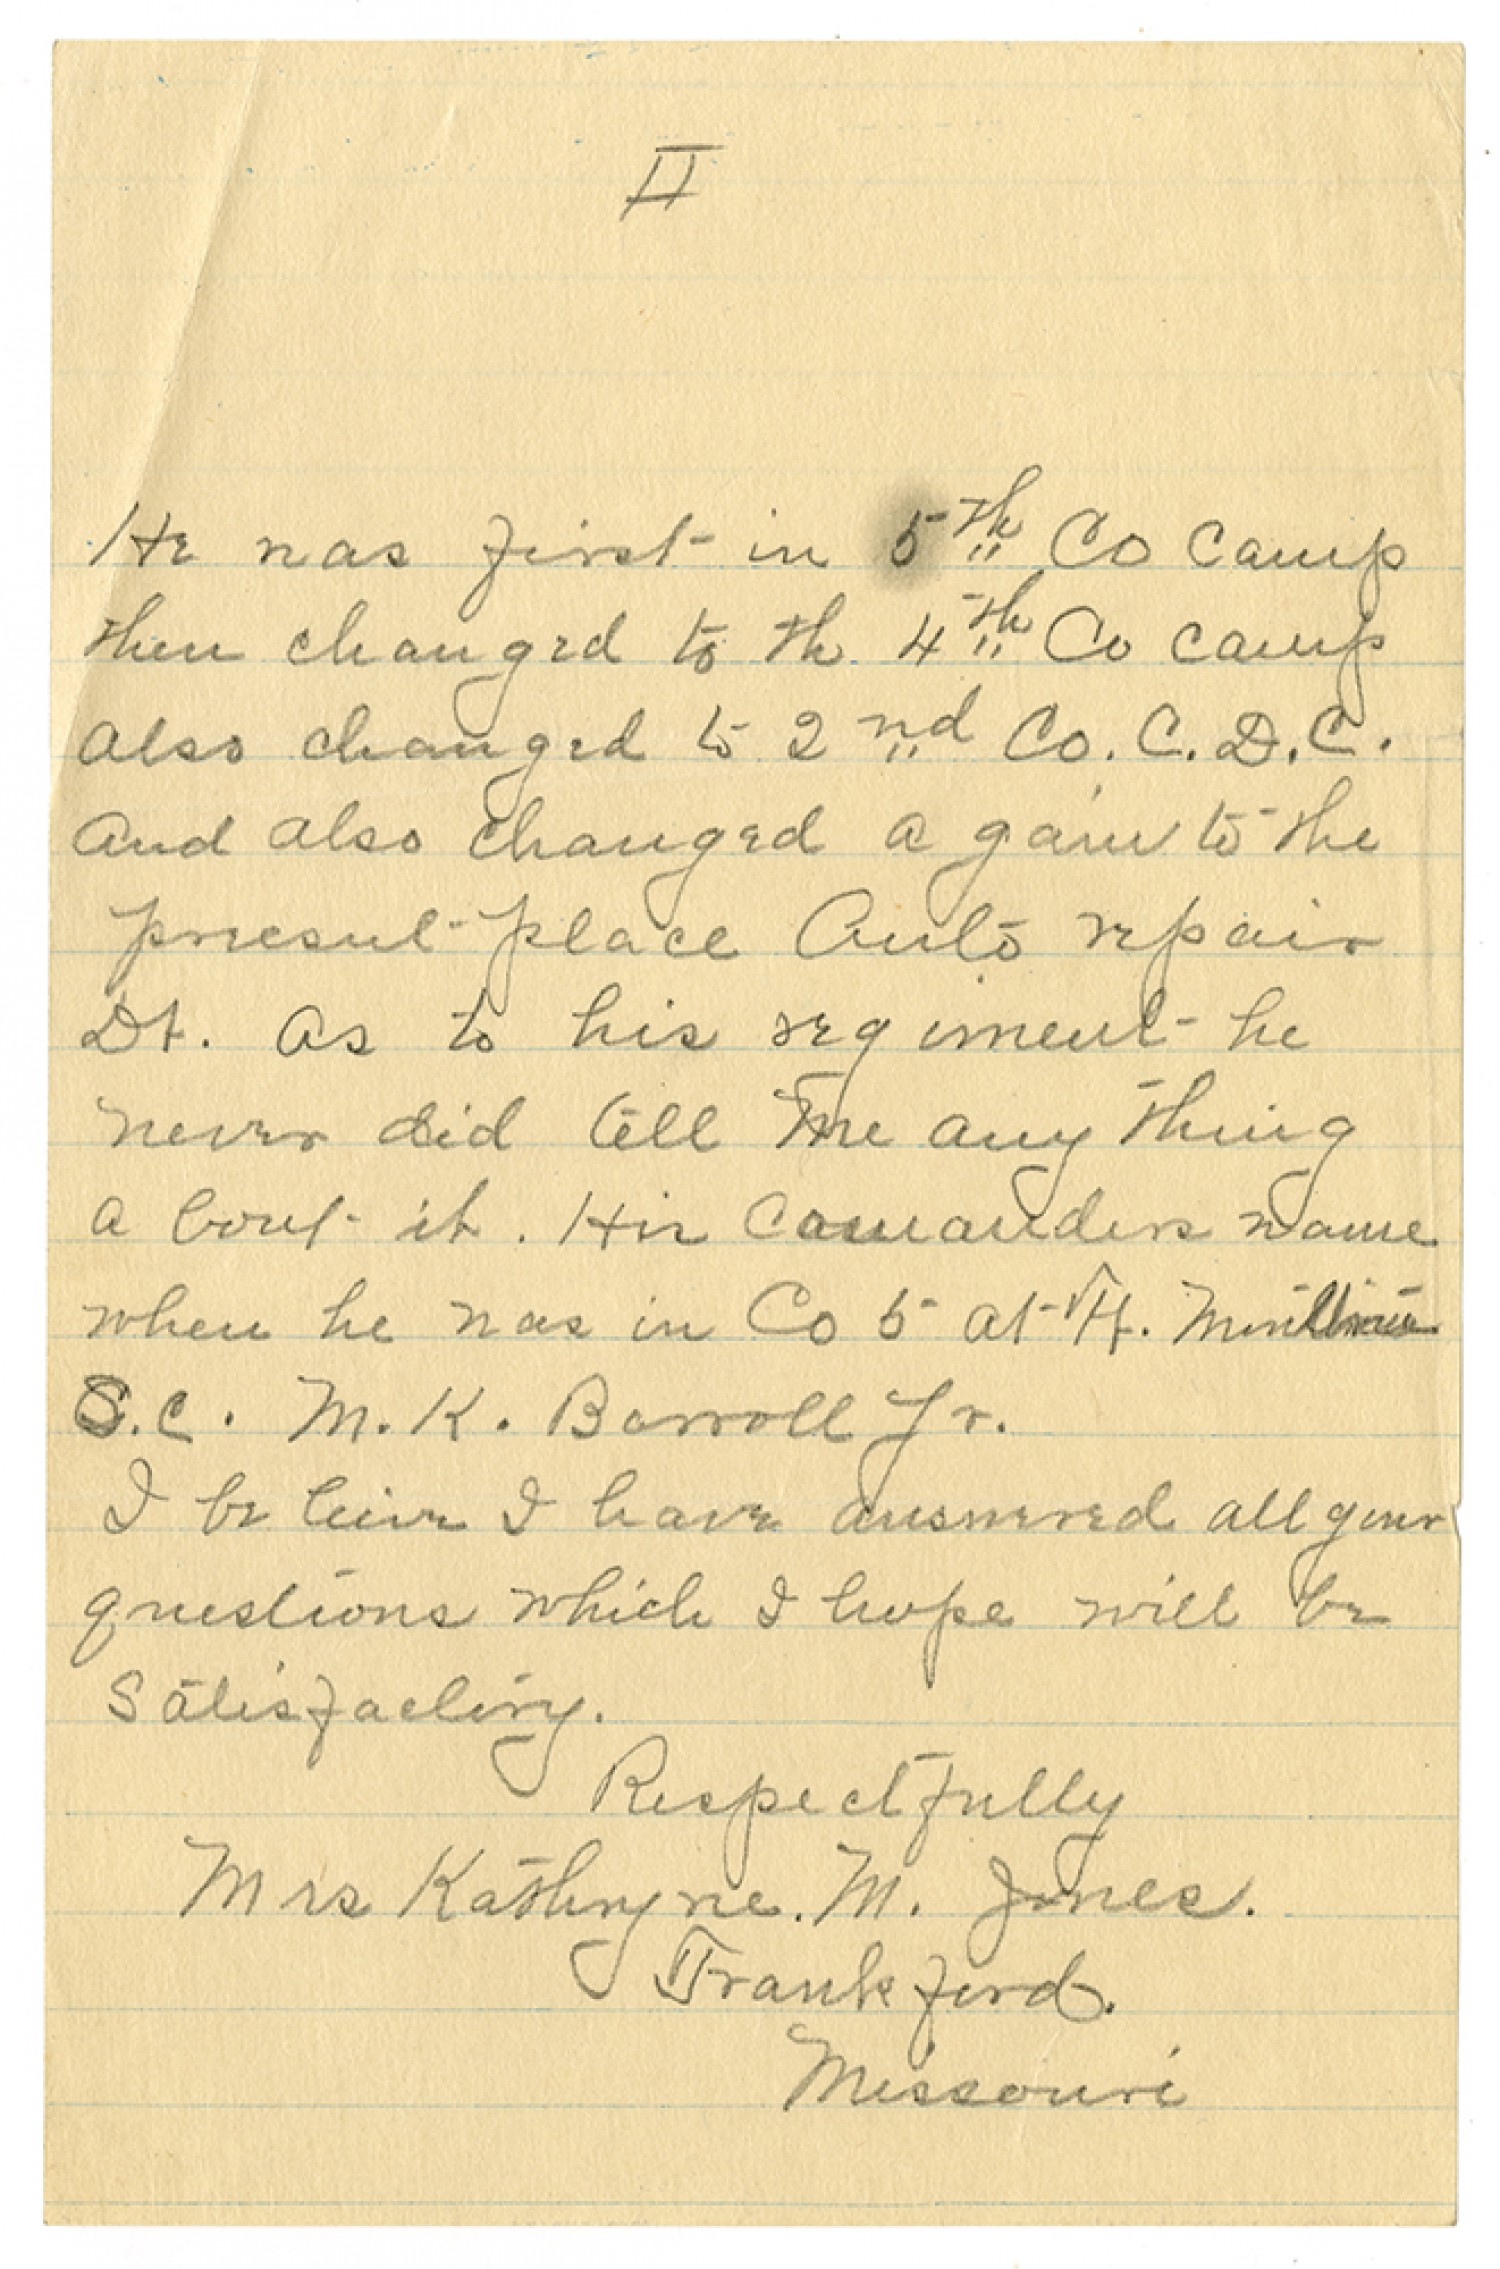 II
He was first in 5th Co Camp
then changed to th 4th Co camp
also changed to 2nd Co. C. D. C.
And also changed a gain to the
present place Auto repair
Dt. As to his regiment he
never did tell me any thing
a bout it. His Comanders name
when he was in Co 5 at Ft.
S.C. M. K. Barroll Jr.
I be leive I have answered all your
questions which I hope will be
Satisfactory.
Respectfully
Mrs Kathryne. M. Jones.
Frankford.
Missouri